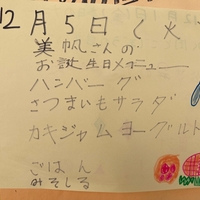 12月5日(火)
美帆さんの
お誕生日メニュー
ハンバーグ
さつまいもサラダ
カキジャムヨーグルト
ごはん
みそしる